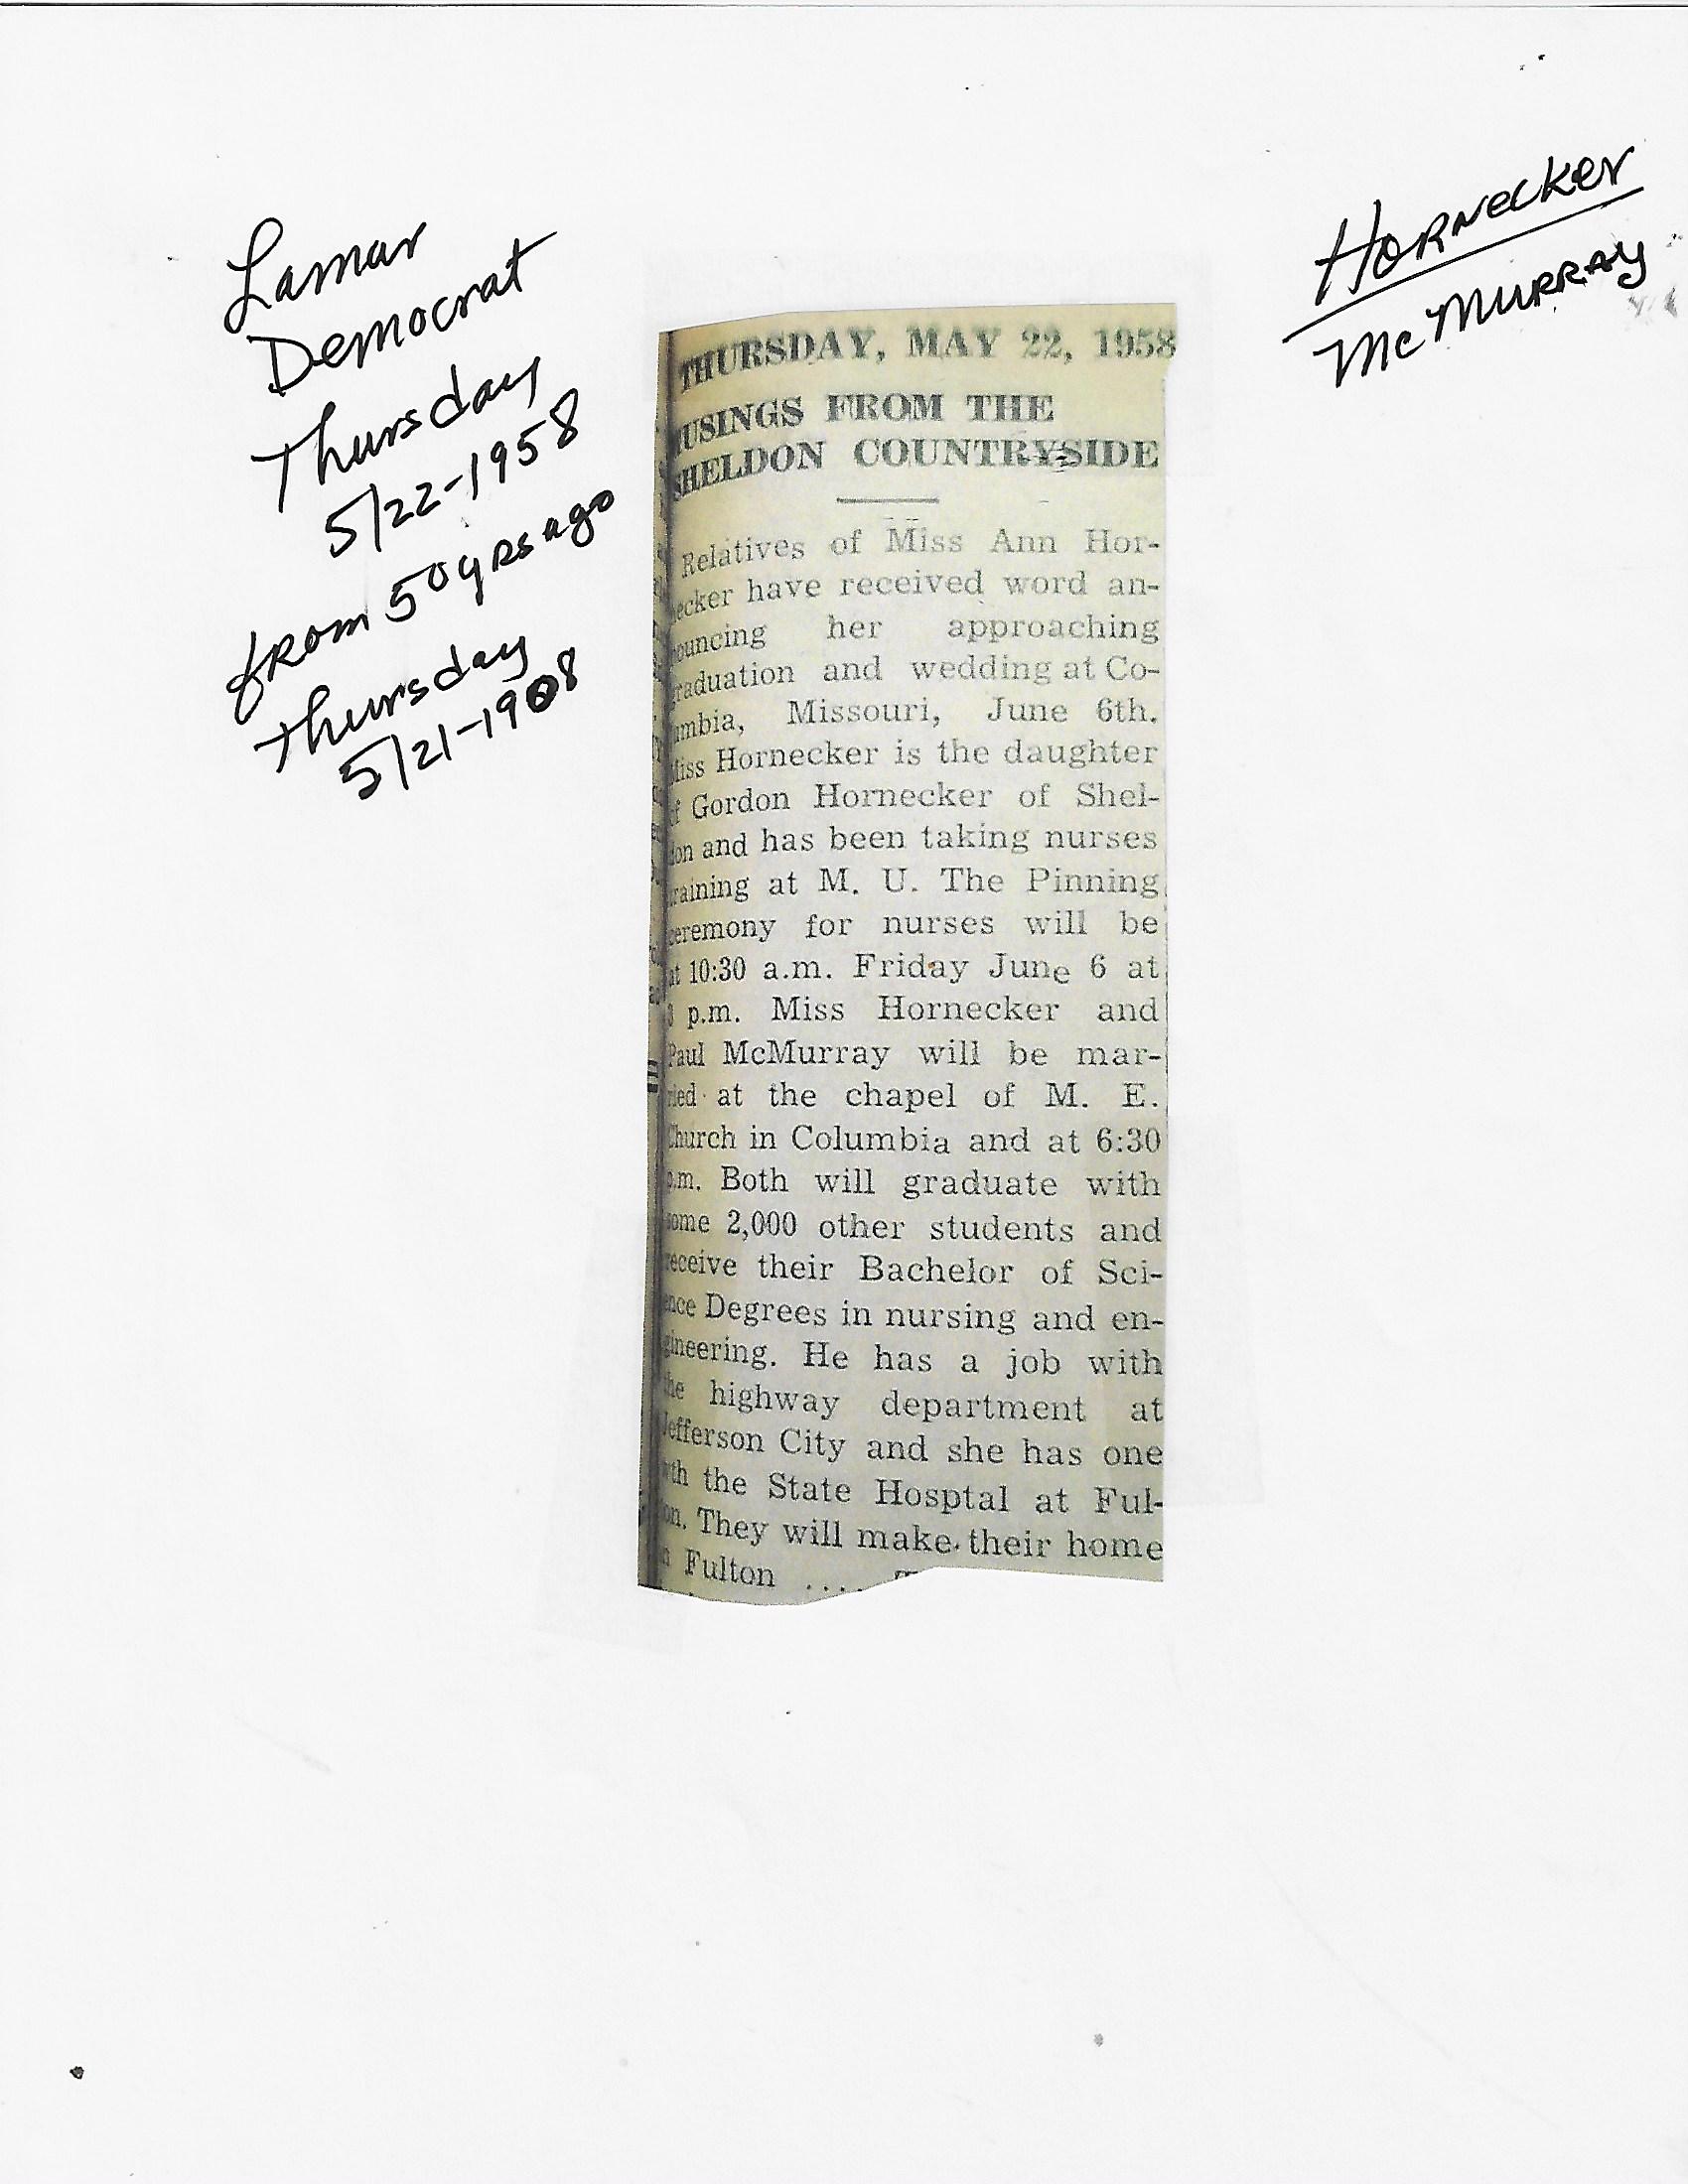 Lamar
Democrat
Thursday
5/22-1958
from 50 yrs ago
Thursday
5/21-1908
Hornecker
McMurray
THURSDAY, MAY 22, 1958
USINGS FROM THE
SHELDON COUNTRYSIDE
Relatives of Miss Ann Hor-
ecker have received word an-
ouncing her approaching
raduation and wedding at Co-
umbia, Missouri, June 6th.
iss Hornecker is the daughter
f Gordon Hornecker of Shel-
don and has been taking nurses
raining at M. U. The Pinning
eremony for nurses will be
at 10:30 a.m. Friday June 6 at
3 p.m. Miss Hornecker and
Paul McMurray will be mar-
ried at the chapel of M. E.
Church in Columbia and at 6:30
p.m. Both will graduate with
some 2,000 other students and
receive their Bachelor of Sci-
ence Degrees in nursing and en-
gineering. He has a job with
the highway department at
Jefferson City and she has one
wth the State Hosptal at Ful-
on. They will make their home
n Fulton ....